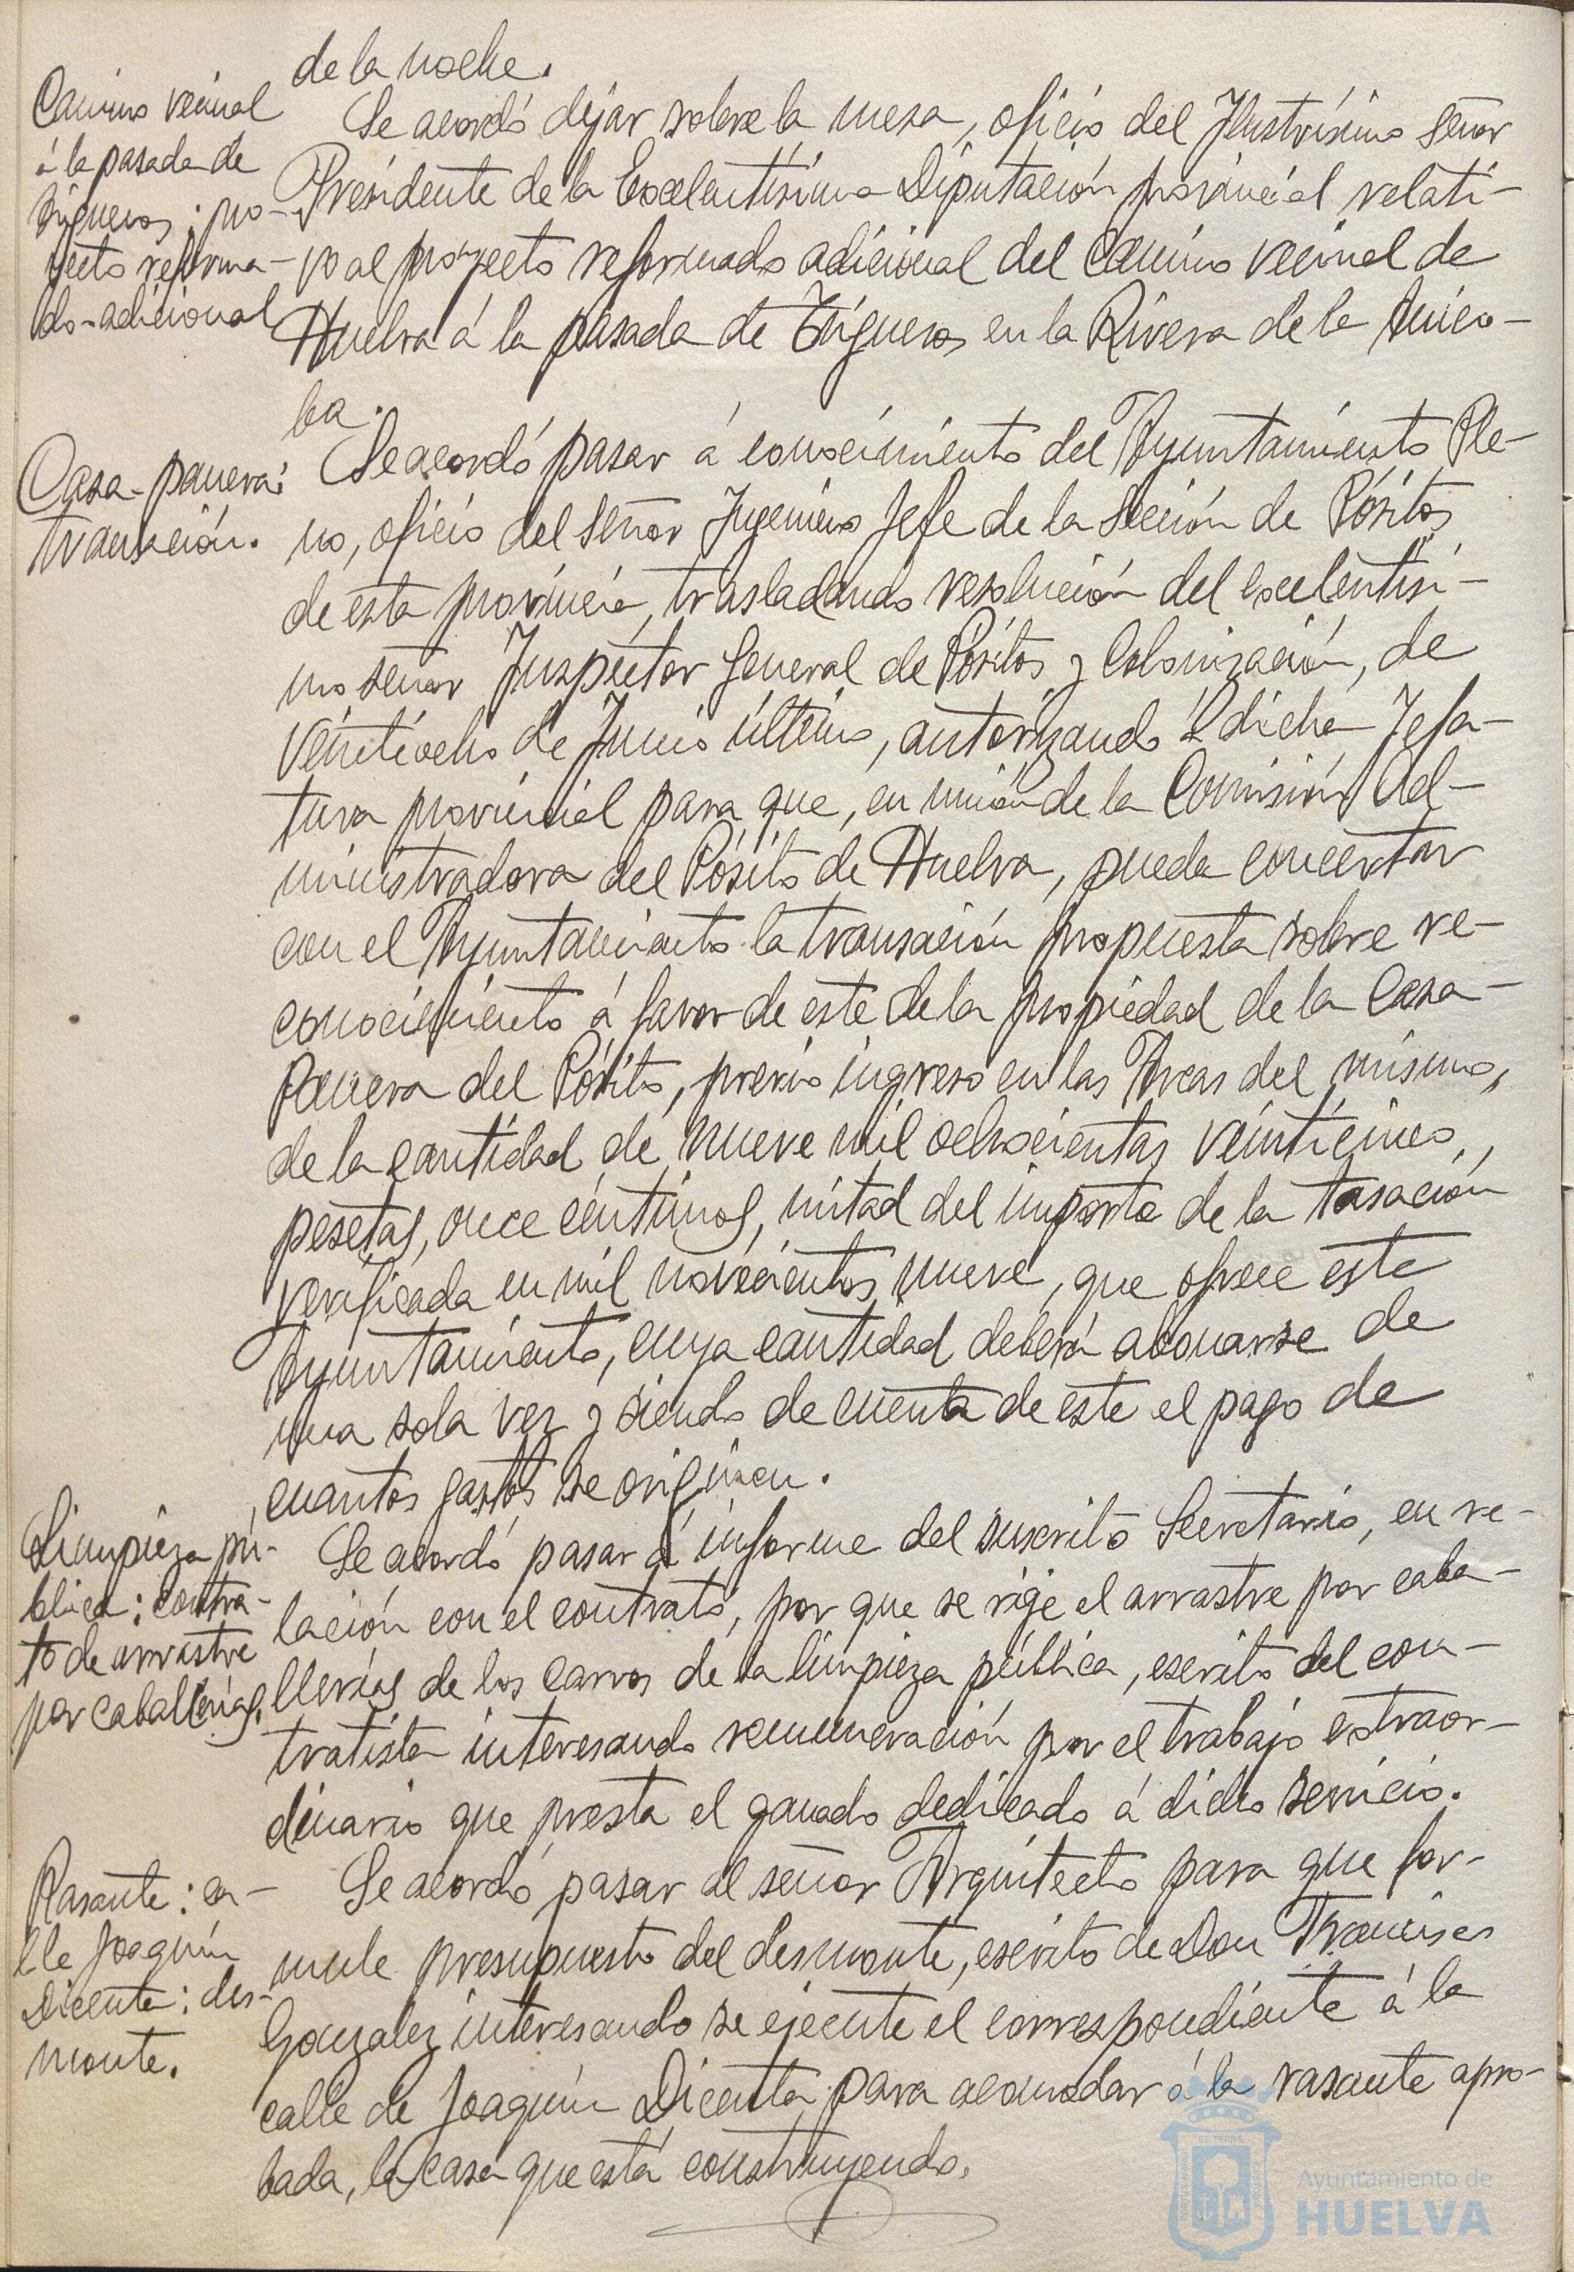 de la noche.
Camino vecinal
á la pasada de
Trigueros: pro-
yecto reforma-
do-adicional
Se acordó dejar sobre la mesa, oficio del Ilustrísimo señor
Presidente de la Excelentísima Diputación provincial relati-
vo al proyecto reformado adicional del camino vecinal de
Huelva á la pasada de Trigueros en la Rivera de la Anico-
ba.
Casa-panera:
transación.
Se acordó pasar á conocimiento del Ayuntamiento Ple-
no, oficio del señor Ingeniero Jefe de la Sección de Pósitos
de esta provincia, trasladando resolución del Excelentísi-
mo señor Inspector General de Pósitos y Colonización, de
veintiocho de Junio último, autorizando á dicha Jefa-
tura provincial para que, en unión de la Comisión Ad-
ministradora del Pósito de Huelva, pueda concertar
con el Ayuntamiento la transación propuesta sobre re-
conocimiento á favor de este de la propiedad de la Casa-
Panera del Pósito, previo ingreso en las Arcas del mismo,
de la cantidad de nueve mil ochocientas veinticinco,
pesetas, once céntimos, mitad del importe de la tasación
verificada en mil novecientos nueve, que ofrece este
Ayuntamiento, cuya cantidad deberá abonarse de
una sola vez y siendo de cuenta de este el pago de
cuantos gastos se originen.
Limpieza pú-
blica: contra-
to de arrastre
por caballerías.
Se acordó pasar á informe del suscrito Secretario, en re-
lación con el contrato, por que se rige el arrastre por caba-
llerías de los carros de la limpieza pública, escrito del con-
tratista interesando remuneración por el trabajo extraor-
dinario que presta el ganado dedicado á dicho servicio.
Rasante: ca-
lle Joaquín
Dicenta: des-
monte.
Se acordó pasar al señor Arquitecto para que for-
mule presupuesto del desmonte, escrito de Don Francisco
González interesando se ejecute el correspondiente á la
calle de Joaquín Dicenta para acomodar á la rasante apro-
bada, la casa que está construyendo.
Ayuntamiento de
HUELVA